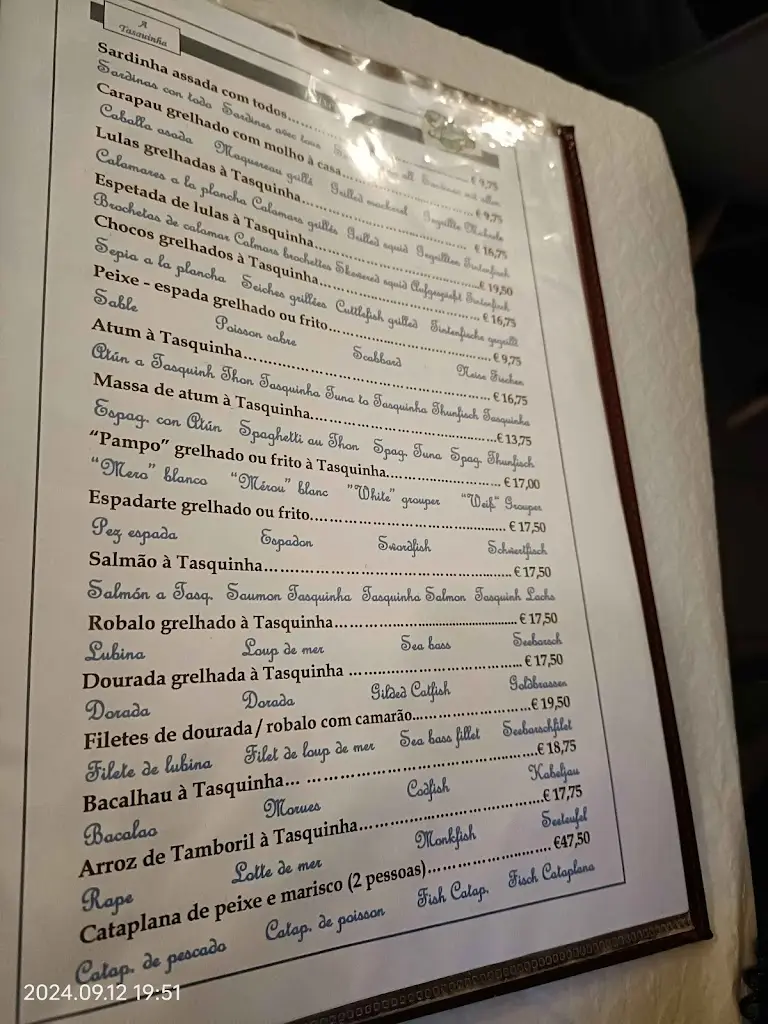 A
Tasquinha
Sardinha assada com todos... € 9,75
Sardinas con todo Sardines avec tous all
Carapau grelhado com molho à casa... € 9,75
Caballa asada Maquereau grillé Grilled mackerel Gegrillte Makrele
Lulas grelhadas à Tasquinha... € 16,75
Calamares a la plancha Calamars grillés Grilled squid Gegrillten Tintenfisch
Espetada de lulas à Tasquinha... € 19,50
Brochetas de calamar Calmars brochettes Skewered squid Aufgespießt Tintenfisch
Chocos grelhados à Tasquinha... € 16,75
Sepia a la plancha Seiches grillées Cuttlefish grilled Tintenfische gegrillt
Peixe - espada grelhado ou frito... € 9,75
Sable Poisson sabre Scabbard
Atum à Tasquinha... € 16,75
Atún a Tasquinh Thon Tasquinha Tuna to Tasquinha Thunfisch Tasquinha
Massa de atum à Tasquinha... € 13,75
Espag. con Atún Spaghetti au Thon Spag. Tuna Spag. Thunfisch
“Pampo” grelhado ou frito à Tasquinha... € 17,00
“Mero” blanco “Mérou” blanc “White” grouper “Weiß” Grouper
Espadarte grelhado ou frito... € 17,50
Pez espada Espadon Swordfish Schwertfisch
Salmão à Tasquinha... € 17,50
Salmón a Tasq. Saumon Tasquinha Tasquinha Salmon Tasquinh Lachs
Robalo grelhado à Tasquinha... € 17,50
Lubina Loup de mer Sea bass Seebarsch
Dourada grelhada à Tasquinha ... € 17,50
Dorada Dorada Gilded Catfish Goldbrassen
Filetes de dourada / robalo com camarão... € 19,50
Filete de lubina Filet de loup de mer Sea bass fillet Seebarschfilet
Bacalhau à Tasquinha... € 18,75
Bacalao Morues Codfish Kabeljau
Arroz de Tamboril à Tasquinha... € 17,75
Rape Lotte de mer Monkfish Seeteufel
Cataplana de peixe e marisco (2 pessoas)... €47,50
Catap. de pescado Catap. de poisson Fish Catap. Fisch Cataplana
2024.09.12 19:51